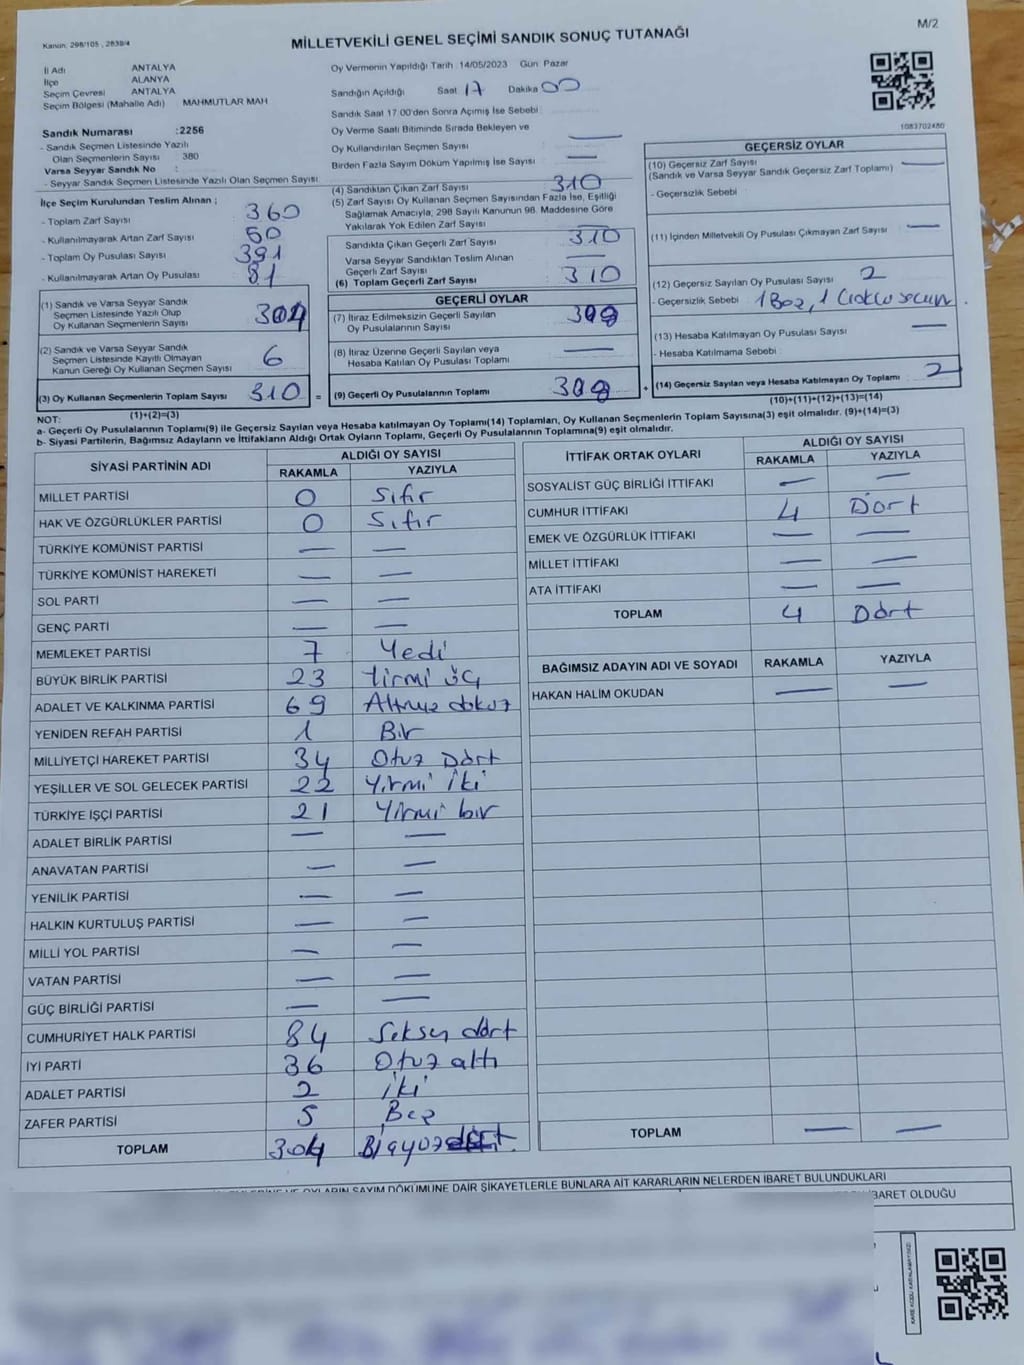 M/2
Kanun: 298/105 , 2839/4
MİLLETVEKİLİ GENEL SEÇİMİ SANDIK SONUÇ TUTANAĞI
İl Adı ANTALYA
İlçe ALANYA
Seçim Çevresi ANTALYA
Seçim Bölgesi (Mahalle Adı) MAHMUTLAR MAH
Sandık Numarası :2256
- Sandık Seçmen Listesinde Yazılı
Olan Seçmenlerin Sayısı : 380
Varsa Seyyar Sandık No :
- Seyyar Sandık Seçmen Listesinde Yazılı Olan Seçmen Sayısı
İlçe Seçim Kurulundan Teslim Alınan ;
- Toplam Zarf Sayısı 360
- Kullanılmayarak Artan Zarf Sayısı 50
- Toplam Oy Pusulası Sayısı 391
- Kullanılmayarak Artan Oy Pusulası 81
(1) Sandık ve Varsa Seyyar Sandık
Seçmen Listesinde Yazılı Olup
Oy Kullanan Seçmenlerin Sayısı 304
(2) Sandık ve Varsa Seyyar Sandık
Seçmen Listesinde Kayıtlı Olmayan
Kanun Gereği Oy Kullanan Seçmen Sayısı 6
(3) Oy Kullanan Seçmenlerin Toplam Sayısı 310 =
(1)+(2)=(3)
Oy Vermenin Yapıldığı Tarih :14/05/2023 Gün: Pazar
Sandığın Açıldığı Saat 17 Dakika 00
Sandık Saat 17:00'den Sonra Açımış İse Sebebi :
Oy Verme Saati Bitiminde Sırada Bekleyen ve
Oy Kullandırılan Seçmen Sayısı —
Birden Fazla Sayım Döküm Yapılmış İse Sayısı —
(4) Sandıktan Çıkan Zarf Sayısı 310
(5) Zarf Sayısı Oy Kullanan Seçmen Sayısından Fazla İse, Eşitliği
Sağlamak Amacıyla, 298 Sayılı Kanunun 98. Maddesine Göre
Yakılarak Yok Edilen Zarf Sayısı
Sandıkta Çıkan Geçerli Zarf Sayısı 310
Varsa Seyyar Sandıktan Teslim Alınan
Geçerli Zarf Sayısı —
(6) Toplam Geçerli Zarf Sayısı 310
GEÇERLİ OYLAR
(7) İtiraz Edilmeksizin Geçerli Sayılan
Oy Pusulalarının Sayısı 308
(8) İtiraz Üzerine Geçerli Sayılan veya
Hesaba Katılan Oy Pusulası Toplamı —
(9) Geçerli Oy Pusulalarının Toplamı 308 +
1083702480
GEÇERSİZ OYLAR
(10) Geçersiz Zarf Sayısı —
(Sandık ve Varsa Seyyar Sandık Geçersiz Zarf Toplamı)
- Geçersizlik Sebebi :
(11) İçinden Milletvekili Oy Pusulası Çıkmayan Zarf Sayısı —
(12) Geçersiz Sayılan Oy Pusulası Sayısı 2
- Geçersizlik Sebebi 1 Boş, 1 Çoklu seçim.
(13) Hesaba Katılmayan Oy Pusulası Sayısı —
- Hesaba Katılmama Sebebi :
(14) Geçersiz Sayılan veya Hesaba Katılmayan Oy Toplamı 2
(10)+(11)+(12)+(13)=(14)
NOT:
a- Geçerli Oy Pusulalarının Toplamı(9) ile Geçersiz Sayılan veya Hesaba katılmayan Oy Toplamı(14) Toplamları, Oy Kullanan Seçmenlerin Toplam Sayısına(3) eşit olmalıdır. (9)+(14)=(3)
b- Siyasi Partilerin, Bağımsız Adayların ve İttifakların Aldığı Ortak Oyların Toplamı, Geçerli Oy Pusulalarının Toplamına(9) eşit olmalıdır.
SİYASİ PARTİNİN ADI ALDIĞI OY SAYISI
RAKAMLA YAZIYLA
MİLLET PARTİSİ 0 Sıfır
HAK VE ÖZGÜRLÜKLER PARTİSİ 0 Sıfır
TÜRKİYE KOMÜNİST PARTİSİ — —
TÜRKİYE KOMÜNİST HAREKETİ — —
SOL PARTİ — —
GENÇ PARTİ — —
MEMLEKET PARTİSİ 7 Yedi
BÜYÜK BİRLİK PARTİSİ 23 Yirmi üç
ADALET VE KALKINMA PARTİSİ 69 Altmış dokuz
YENİDEN REFAH PARTİSİ 1 Bir
MİLLİYETÇİ HAREKET PARTİSİ 34 Otuz Dört
YEŞİLLER VE SOL GELECEK PARTİSİ 22 Yirmi iki
TÜRKİYE İŞÇİ PARTİSİ 21 Yirmi bir
ADALET BİRLİK PARTİSİ — —
ANAVATAN PARTİSİ — —
YENİLİK PARTİSİ — —
HALKIN KURTULUŞ PARTİSİ — —
MİLLİ YOL PARTİSİ — —
VATAN PARTİSİ — —
GÜÇ BİRLİĞİ PARTİSİ — —
CUMHURİYET HALK PARTİSİ 84 Seksen dört
İYİ PARTİ 36 Otuz altı
ADALET PARTİSİ 2 iki
ZAFER PARTİSİ 5 Beş
TOPLAM 304 dört.
İTTİFAK ORTAK OYLARI ALDIĞI OY SAYISI
RAKAMLA YAZIYLA
SOSYALİST GÜÇ BİRLİĞİ İTTİFAKI — —
CUMHUR İTTİFAKI 4 Dört
EMEK VE ÖZGÜRLÜK İTTİFAKI — —
MİLLET İTTİFAKI — —
ATA İTTİFAKI — —
TOPLAM 4 Dört
BAĞIMSIZ ADAYIN ADI VE SOYADI RAKAMLA YAZIYLA
HAKAN HALİM OKUDAN — —
TOPLAM — —
OYLARIN SAYIM DÖKÜMÜNE DAİR ŞİKAYETLERLE BUNLARA AİT KARARLARIN NELERDEN İBARET BULUNDUKLARI
İBARET OLDUĞU